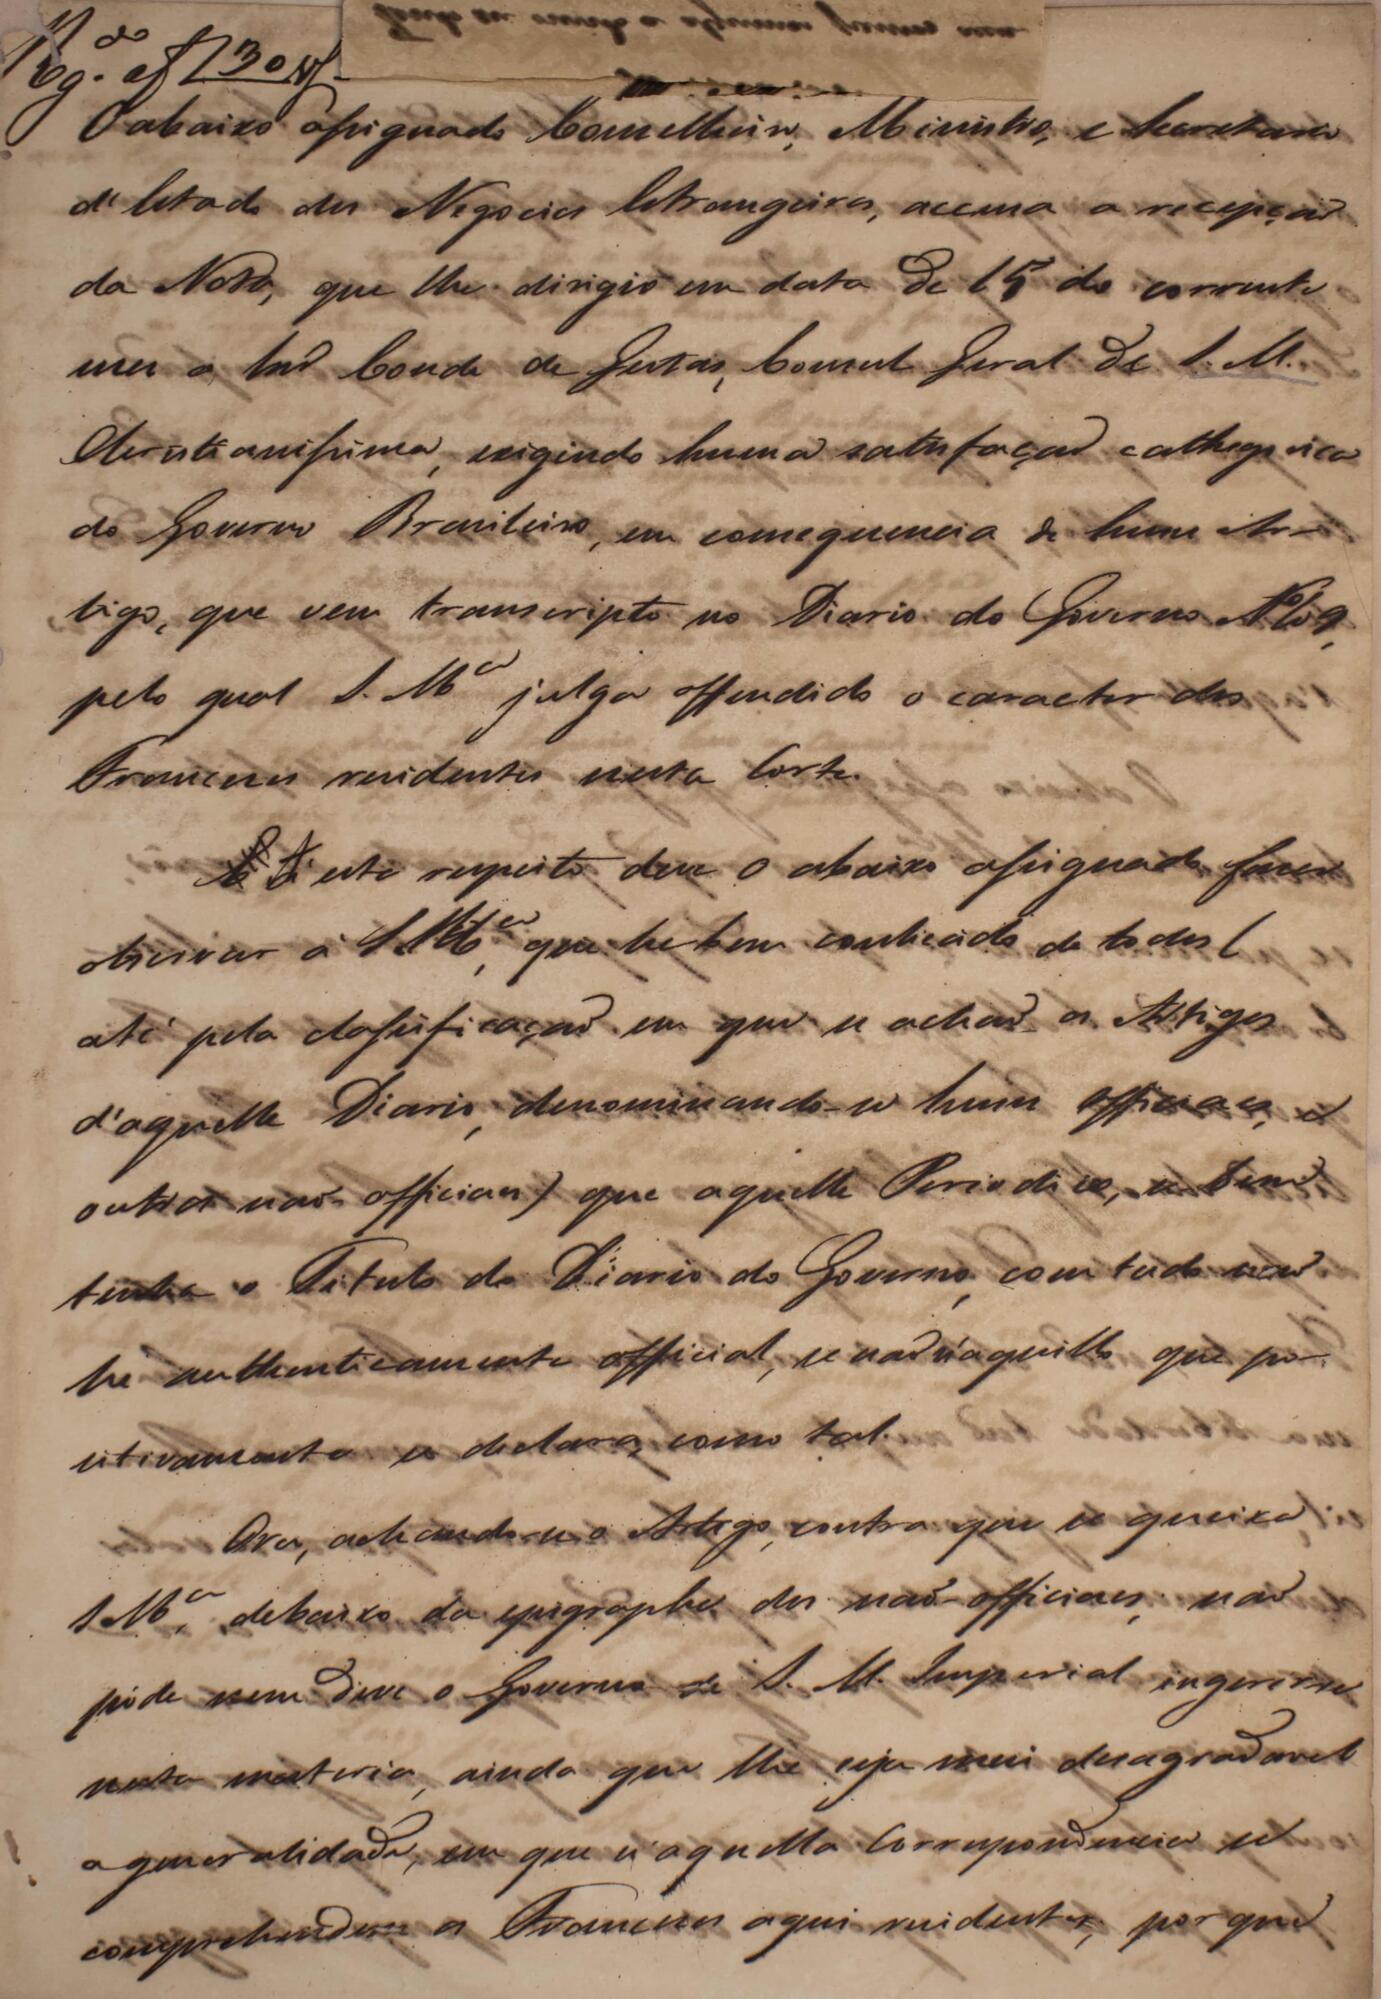 Reg.do a f 130 v
O abaixo assignado Conselheiro, Ministro, e Secretario
d'Estado dos Negocios Estrangeiros, accusa a recepçaõ
da Nota, que lhe dirigio em data de 15 do corrente
mez o Snr Conde de Gestas, Consul Geral de S. M.
Christianissima, exigindo huma satisfaçaõ cathegorica
do Governo Brasileiro, em consequencia de hum Ar-
tigo, que vem transcripto no Diario do Governo No 69,
pelo qual S. Mce julga offendido o caracter dos
Francezes residentes nesta Corte.
A este respeito deve o abaixo assignado fazer
observar a S. Mce, que he bem conhecido de todos (
até pela classificaçaõ em que se achaõ os Artigos
d'aquelle Diario, denominando-se huns officiaes, e
outros naõ officiaes) que aquelle Periodico, se bem
tenha o Titulo de Diario do Governo, com tudo naõ
hé authenticamente official, se naõ n'aquillo que po-
sitivamente se declara como tal.
Ora, achando-se o Artigo, contra que se queixa
S. Mce, debaixo da epigraphe dos naõ officiaes, naõ
póde nem deve o Governo de S. M. Imperial ingerir-se
nesta materia, ainda que lhe seja mui desagradavel
a generalidade, em que n'aquella Correspondencia se
comprehendem os Francezes aqui residentes, por que